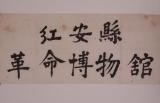 红安縣
革命博物館